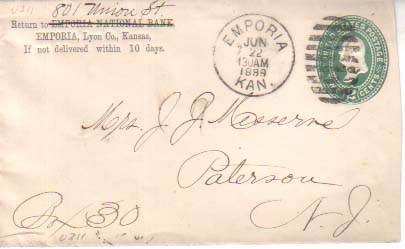 U311
801 Union St
Return to EMPORIA NATIONAL BANK
EMPORIA, Lyon Co., Kansas,
If not delivered within 10 days.
EMPORIA
JUN
22
130AM
1889
KAN.
STATES POSTAGE
CENTS
Mrs. J. J. Messerve
Paterson
N. J.
Box 30
U311